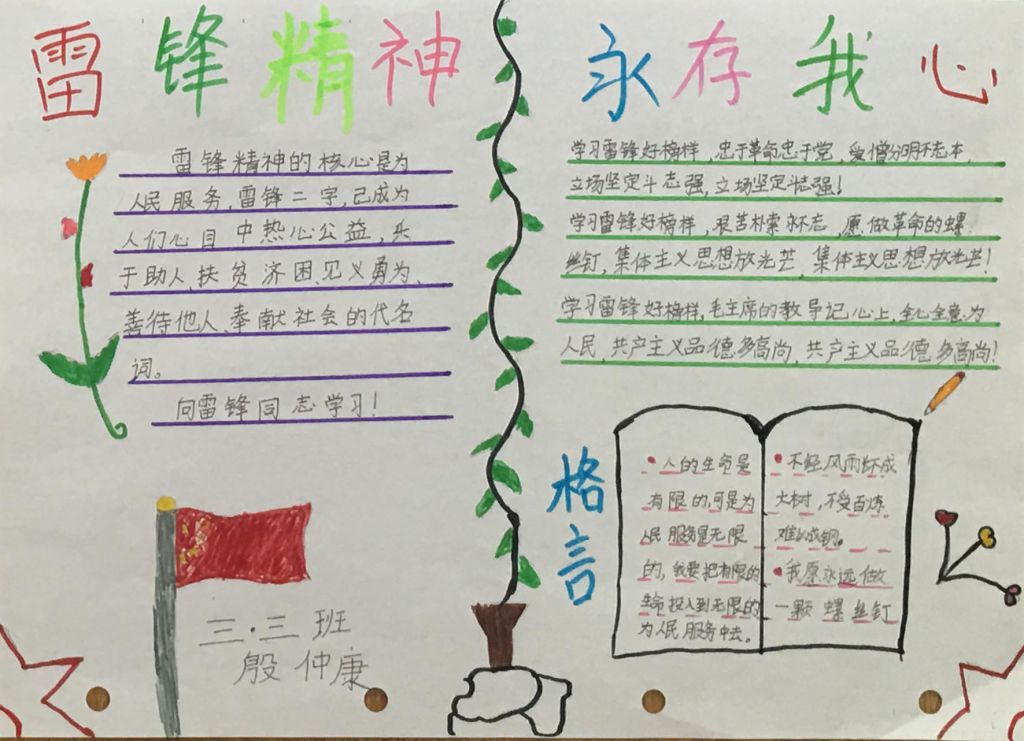 雷锋精神 永存我心
雷锋精神的核心是为
人民服务,雷锋二字,己成为
人们心目中热心公益,乐
于助人,扶贫济困、见义勇为、
善待他人,奉献社会的代名
词。
向雷锋同志学习!
三·三班
殷仲康
学习雷锋好榜样,忠于革命忠于党,爱憎分明不忘本,
立场坚定斗志强,立场坚定斗志强!
学习雷锋好榜样,艰苦朴素永不忘,愿做革命的螺
丝钉,集体主义思想放光芒,集体主义思想放光芒!
学习雷锋好榜样,毛主席的教导记心上,全心全意为
人民,共产主义品德多高尚,共产主义品德多高尚!
格言
•人的生命是
有限的,可是为
人民服务是无限
的,我要把有限的
生命投入到无限的
为人民服务中去。
•不经风雨长不成
大树,不受百炼
难以成钢。
•我愿永远做
一颗螺丝钉